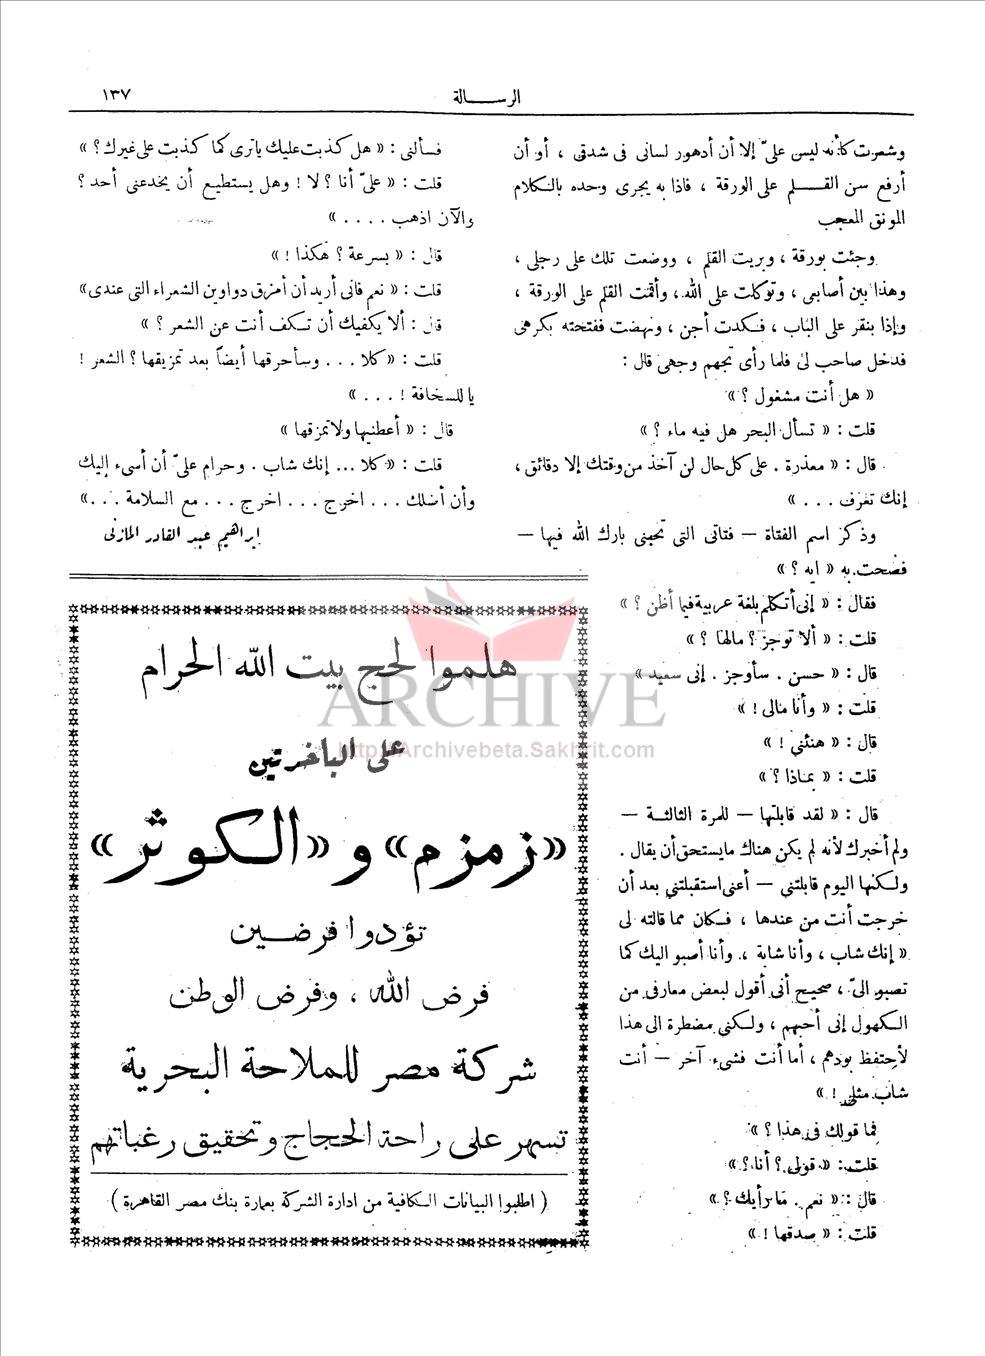 الرســـالة
١٣٧
وشعرت كأنه ليس علىّ إلا أن أدهور لسانى فى شدقى ، أو أن
أرفع سن القـــلم على الورقة ، فاذا به يجرى وحده بالكلام
المونق المعجب
وجئت بورقة ، وبريت القلم ، ووضعت تلك على رجلى ،
وهذا بين أصابعى ، وتوكلت على الله ، وأقمت القلم على الورقة ،
وإذا بنقر على الباب ، فكدت أجن ، ونهضت ففتحته بكرهى
فدخل صاحب لى فلما رأى تجهم وجهى قال :
« هل أنت مشغول ؟ »
قلت : « تسأل البحر هل فيه ماء ؟ »
قال : « معذرة . على كل حال لن آخذ من وقتك إلا دقائق ،
إنك تعرف . . . »
وذكر اسم الفتاة — فتاتى التى تحبنى بارك الله فيها —
فصحت به « ايه ؟ »
فقال : « إنى أتكلم بلغة عربية فيما أظن ؟ »
قلت : « ألا توجز ؟ مالها ؟ »
قال : « حسن . سأوجز . إنى سعيد »
قلت : « وأنا مالى ! »
قال : « هنئنى ! »
قلت : « بماذا ؟ »
قال : « لقد قابلتها — للمرة الثالثة —
ولم أخبرك لأنه لم يكن هناك ما يستحق أن يقال .
ولكنها اليوم قابلتنى — أعنى استقبلتنى بعد أن
خرجت أنت من عندها ، فكان مما قالته لى
« إنك شاب ، وأنا شابة ، وأنا أصبو اليك كما
تصبو الىّ ، صحيح أنى أقول لبعض معارفى من
الكهول إنى أحبهم ، ولكنى مضطرة الى هذا
لأحتفظ بودهم ، أما أنت فشىء آخر — أنت
شاب مثلى ! »
فما قولك فى هذا ؟ »
قلت : « قولى ؟ أنا ؟ »
قال : « نعم . ما رأيك ؟ »
قلت : « صدقها ! »
فسألنى : « هل كذبت عليك ياترى كما كذبت على غيرك ؟ »
قلت : « علىّ أنا ؟ لا ! وهل يستطيع أن يخدعنى أحد ؟
والآن اذهب . . . . »
قال : « بسرعة ؟ هكذا ! »
قلت : « نعم فانى أريد أن أمزق دواوين الشعراء التى عندى »
قال : ألا يكفيك أن تكف أنت عن الشعر ؟ »
قلت : « كلا . . . وسأحرقها أيضاً بعد تمزيقها ؟ الشعر !
يا للسخافة ! . . . »
قال : « أعطنيها ولا تمزقها »
قلت : « كلا ... إنك شاب . وحرام علىّ أن أسىء إليك
وأن أضلك . . . اخرج . . . اخرج . . . مع السلامة . . . »
إبراهيم عبد القادر المازنى
هلموا لحج بيت الله الحرام
على الباخرتين
«زمزم» و «الكوثر»
تؤدوا فرضـــين
فرض الله ، وفرض الوطن
شركة مصر للملاحة البحرية
تسهر على راحة الحجاج وتحقيق رغباتهم
( اطلبوا البيانات الكافية من ادارة الشركة بعمارة بنك مصر القاهرة )
ARCHIVE
http://Archivebeta.Sakhrit.com